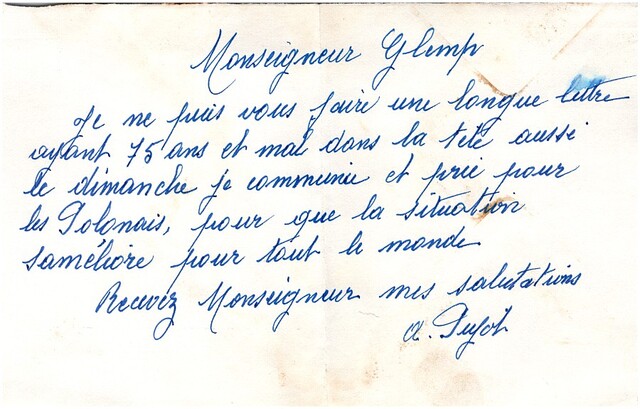 Monseigneur Glemp
Je ne puis vous faire une longue lettre
ayant 75 ans et mal dans la tete aussi
le dimanche je communie et prie pour
les Polonais, pour que la situation
s'améliore pour tout le monde
Recevez Monseigneur mes salutations
a. Pujol